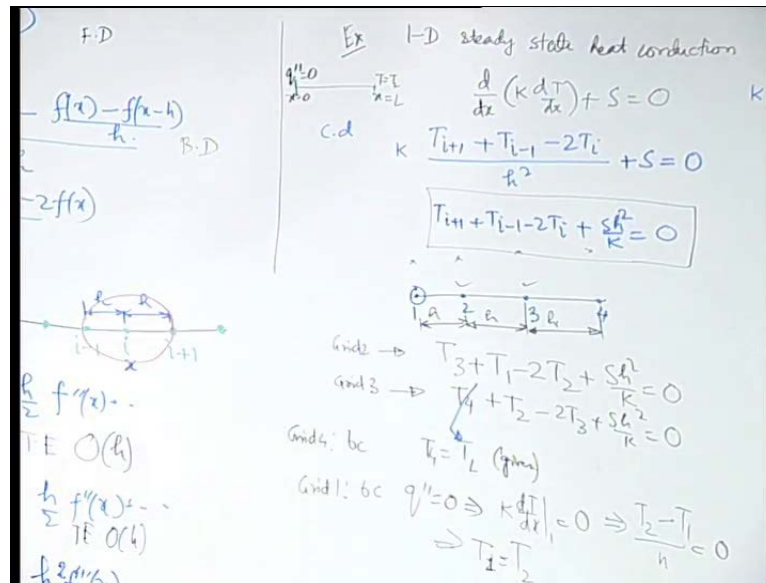 F.D
f(x) - f(x-h)
h.
B.D
-2f(x)
h
h
i-1
i
i+1
x
h/2 f''(x)..
TE O(h)
h/2 f''(x)+...
TE O(h)
Ex 1-D steady state heat conduction
q''=0
x=0
T=TL
x=L
d/dx (K dT/dx) + S = 0
K
C.d
K (Ti+1 + Ti-1 - 2Ti)/h² + S = 0
Ti+1 + Ti-1 - 2Ti + Sh²/K = 0
1 2 3 4
h h h
Grid2 → T3 + T1 - 2T2 + Sh²/K = 0
Grid3 → T4 + T2 - 2T3 + Sh²/K = 0
Grid4: bc T4 = TL (given)
Grid1: bc q''=0 ⇒ K dT/dx|1 = 0 ⇒ (T2 - T1)/h = 0
⇒ T1 = T2